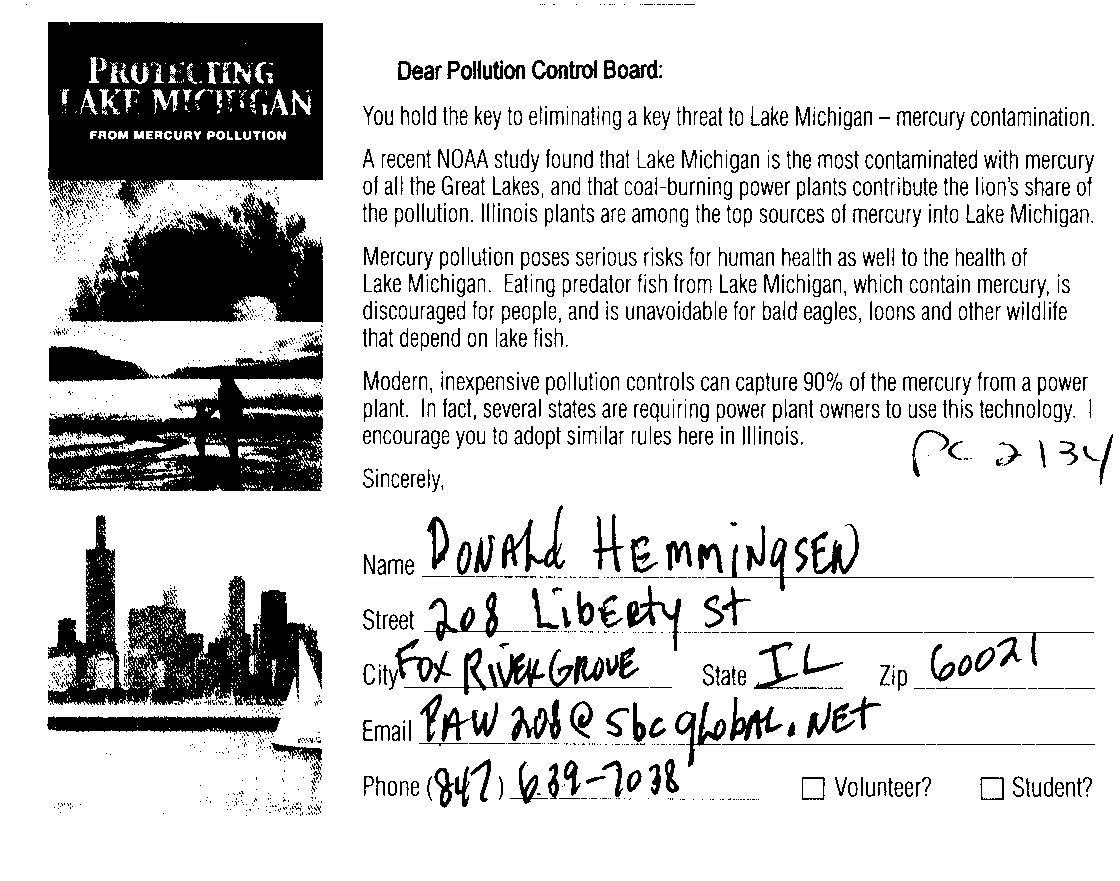 PROTECTING
LAKE MICHIGAN
FROM MERCURY POLLUTION
Dear Pollution Control Board:
You hold the key to eliminating a key threat to Lake Michigan – mercury contamination.
A recent NOAA study found that Lake Michigan is the most contaminated with mercury
of all the Great Lakes, and that coal-burning power plants contribute the lion's share of
the pollution. Illinois plants are among the top sources of mercury into Lake Michigan.
Mercury pollution poses serious risks for human health as well to the health of
Lake Michigan. Eating predator fish from Lake Michigan, which contain mercury, is
discouraged for people, and is unavoidable for bald eagles, loons and other wildlife
that depend on lake fish.
Modern, inexpensive pollution controls can capture 90% of the mercury from a power
plant. In fact, several states are requiring power plant owners to use this technology. I
encourage you to adopt similar rules here in Illinois.
PC 2134
Sincerely,
Name DONALd HEmmiNgSEN
Street 208 LibERty St
City FOX RIVER GROVE State IL Zip 60021
Email PAW208@sbcglobAL.NEt
Phone (847) 639-7038 ☐ Volunteer? ☐ Student?